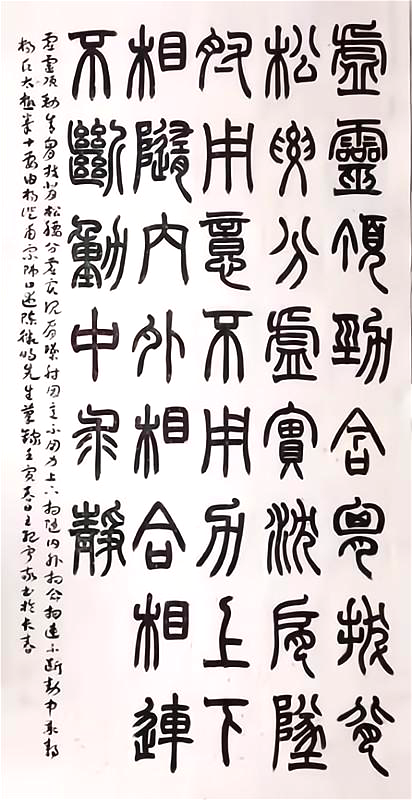 虛靈頂勁含胸拔背
松腰分虛實沈肩墜
肘用意不用力上下
相隨內外相合相連
不斷動中求靜
虛靈頂勁含胸拔背松腰分虛實沉肩墜肘用意不用力上下相隨內外相合相連不斷動中求靜
楊氏太極拳十要由楊澄甫宗師口述陳微明先生筆錄壬寅春日王書於長春